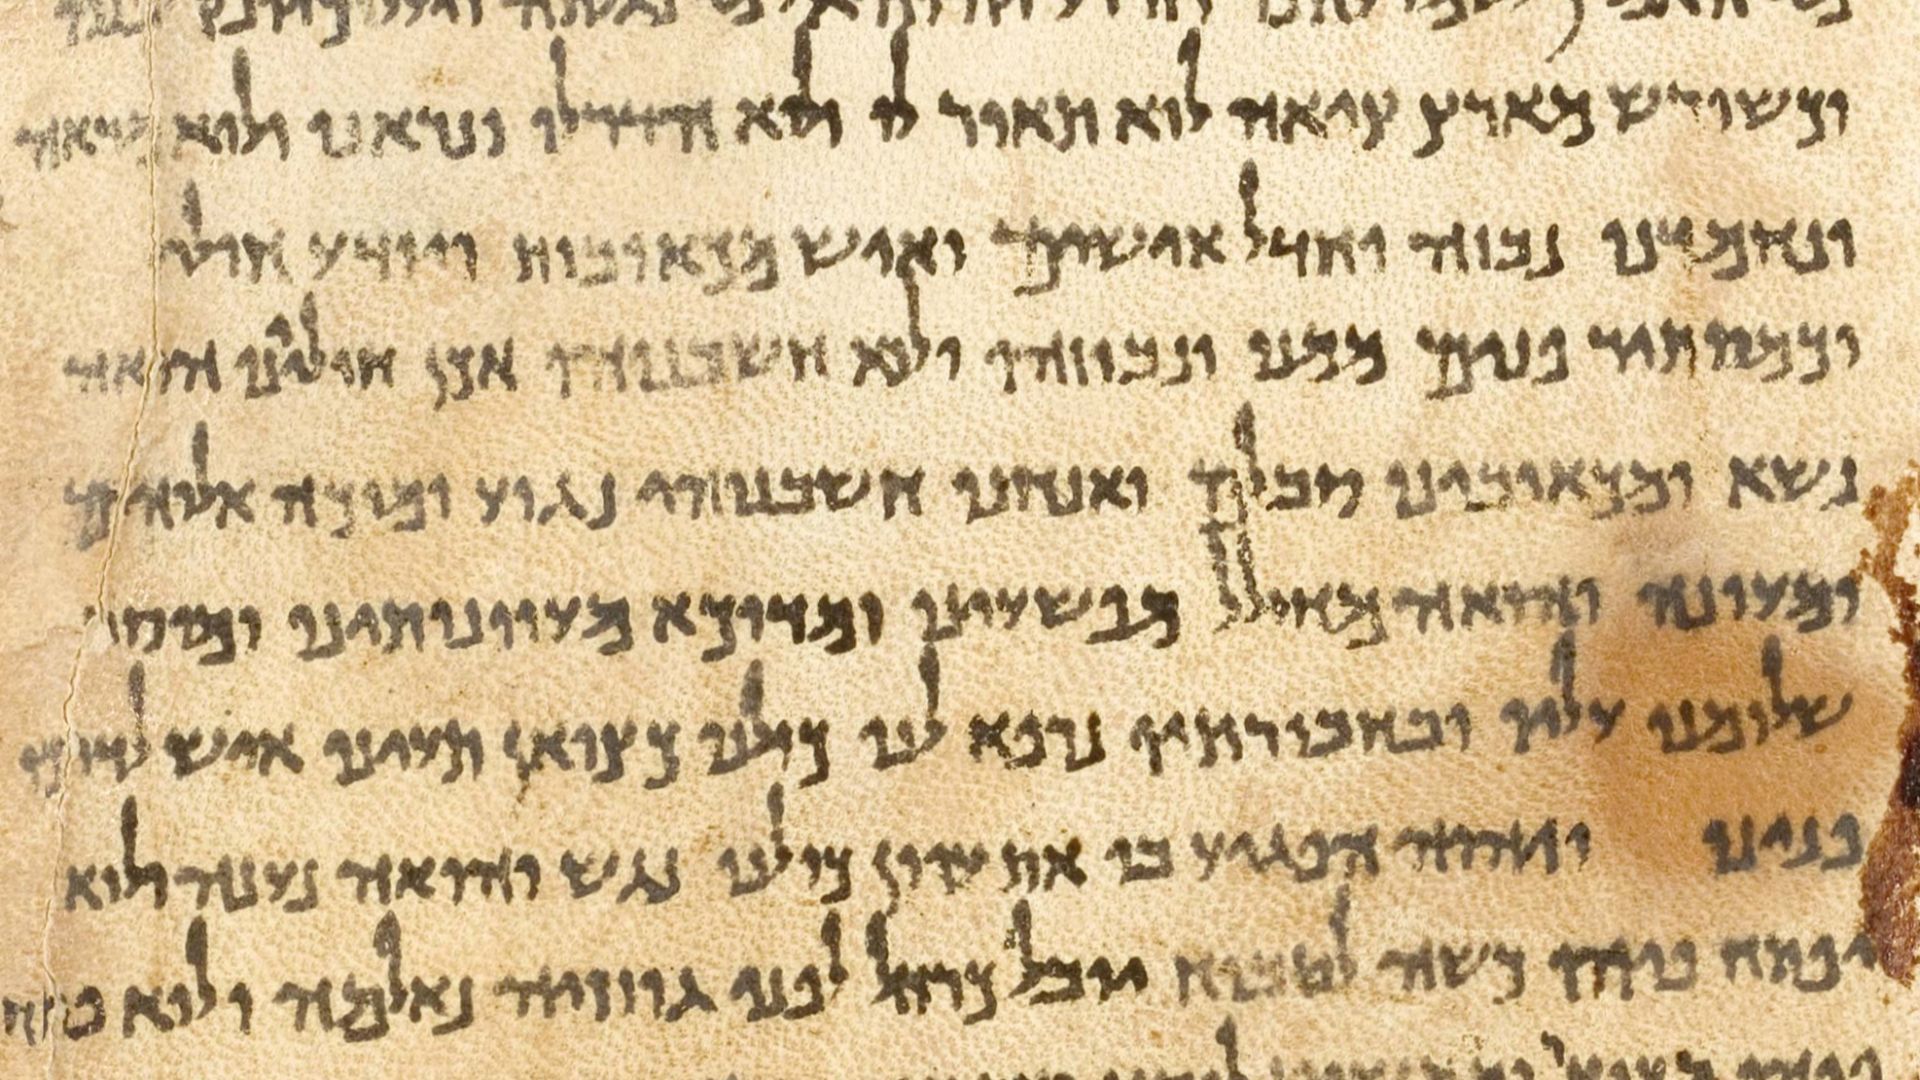 וכשורש מארץ ציאה לוא תאור לו ולא הדר לו ונראנו ולוא מראה
ונחמדנו נבזה וחדל אישים ואיש מכאובות ויודע חולי
וכמסתיר פנים ממנו ונבוזהו ולא חשבנוהו אכן חוליינו הואה
נשא ומכאובינו סבלם ואנחנו חשבנוהו נגוע ומוכה אלוהים
ומעונה והואה מחולל מפשעינו ומדוכא מעוונותינו ומוסר
שלומנו עליו ובחבורתיו נרפא לנו כולנו כצואן תעינו איש לדרכו
פנינו ויהוה הפגיע בו את עוון כולנו נגש והואה נענה ולוא
יפתח פיהו כשה לטבוח יובל כרחל לפני גוזזיה נאלמה ולוא פתח